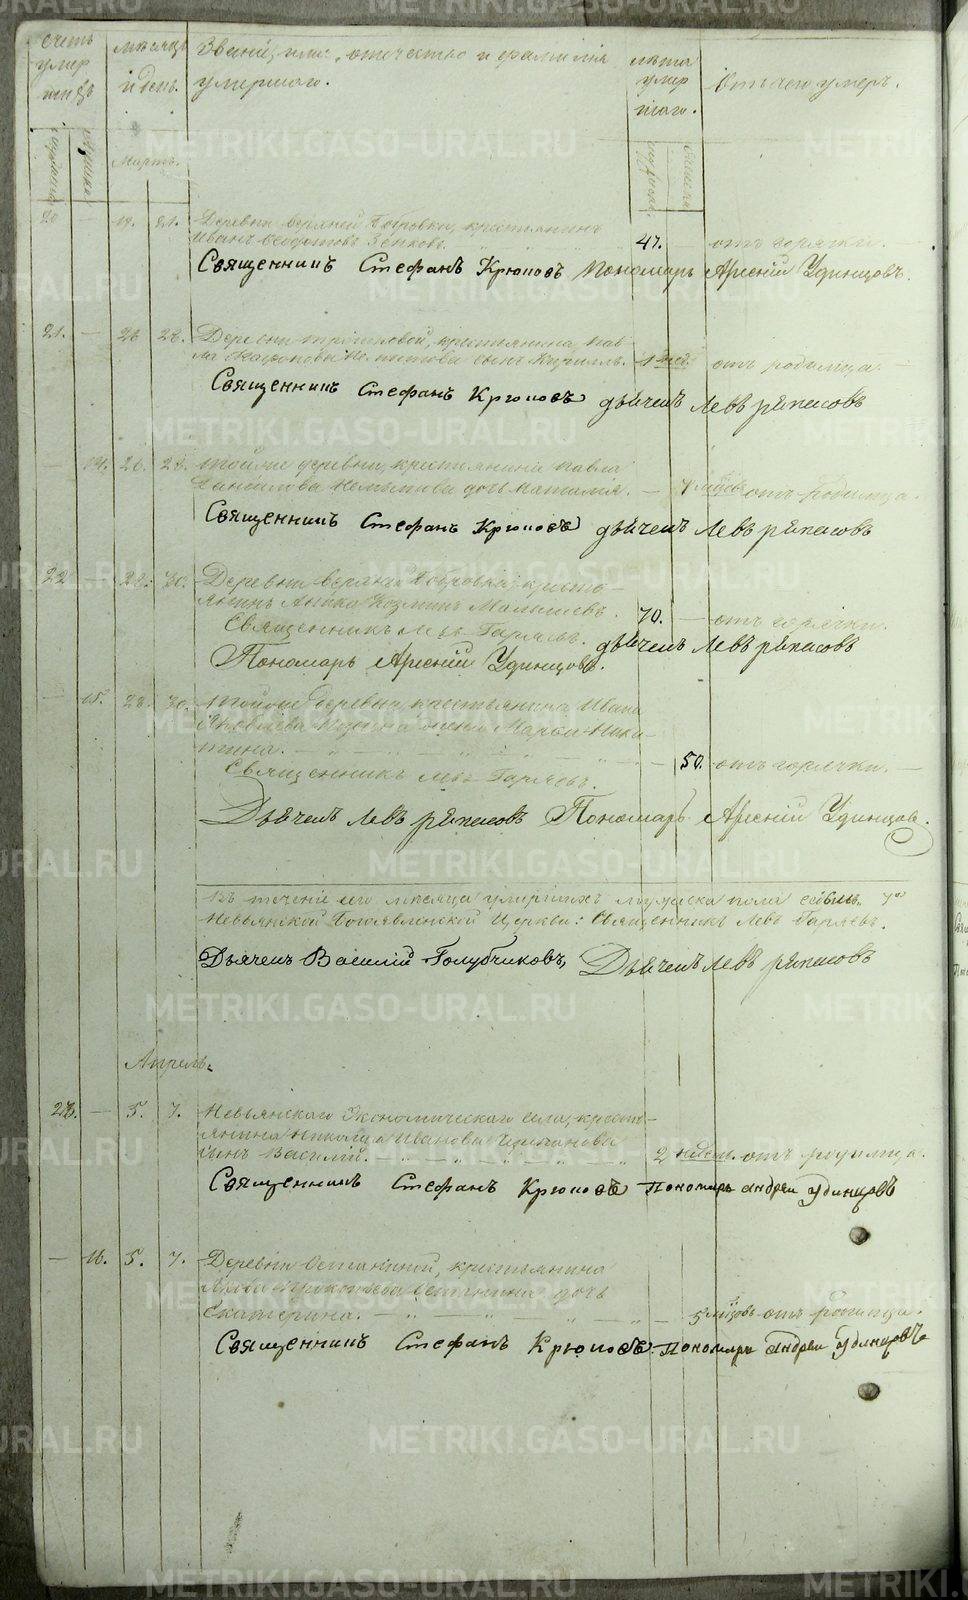 счетъ умер шихъ
мѣсяцъ и день.
Званіе, имя, отечество и фамилія
умершаго.
лѣта умер шаго.
Отъ чего умеръ.
Мартъ.
20 — 19. 21. Деревни верхней Бобровки, крестьянинъ
Иванъ Зенковъ. 47. — отъ горячки.
Священникъ Стефанъ Крюковъ Пономарь Арсеній Удинцовъ.
21. — 26 28. Деревни крестьянина Пав-
ла сынъ Кириллъ. 1 нед. отъ родимца. —
Священникъ Стефанъ Крюковъ дьячекъ Левъ Ряпасовъ
— 14. 26. 28. тойже деревни, крестьянина Павла
дочь Наталія. — отъ Родимца.
Священникъ Стефанъ Крюковъ дьячекъ Левъ Ряпасовъ
22 — 28. 30. Деревни верхней Бобровки, кресть-
янинъ Козминъ Малышевъ. 70. — отъ горячки.
Священникъ Левъ Гаряевъ. дьячекъ Левъ Ряпасовъ
Пономарь Арсеній Удинцовъ.
— 15. 28. 30. Тойже деревни, крестьянина Ивана
Яковлева жена Марѳа Ники-
тина. — 50. отъ горячки. —
Священникъ Левъ Гаряевъ.
Дьячекъ Левъ Ряпасовъ Пономарь Арсеній Удинцов.
Въ теченіе сего мѣсяца умершихъ мужеска пола
Невьянской Богоявленской Церкви: Священникъ Левъ Гаряевъ.
Дьячекъ Василій Голубчиковъ, Дьячекъ Левъ Ряпасовъ
Апрель.
23. — 5. 7. Невьянскаго Экономическаго села, кресть-
янина Николая Иванова
сынъ Василій. — 2 недел. отъ родимца.
Священникъ Стефанъ Крюковъ Пономарь Андрей Удинцовъ
— 16. 5. 7. Деревни Останиной, крестьянина
Прокопьева Останина дочь
Екатерина. — 5 отъ родимца.
Священникъ Стефанъ Крюковъ Пономарь Андрей Удинцовъ
METRIKI.GASO-URAL.RU